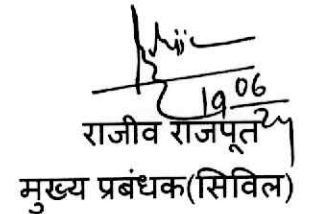 19/06/24
राजीव राजपूत
मुख्य प्रबंधक(सिविल)